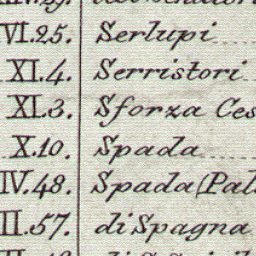 VI.25. Serlupi
XI.4. Serristori
XI.3. Sforza Ces
X.10. Spada
IV.48. Spada (Pal
II.57. di Spagna